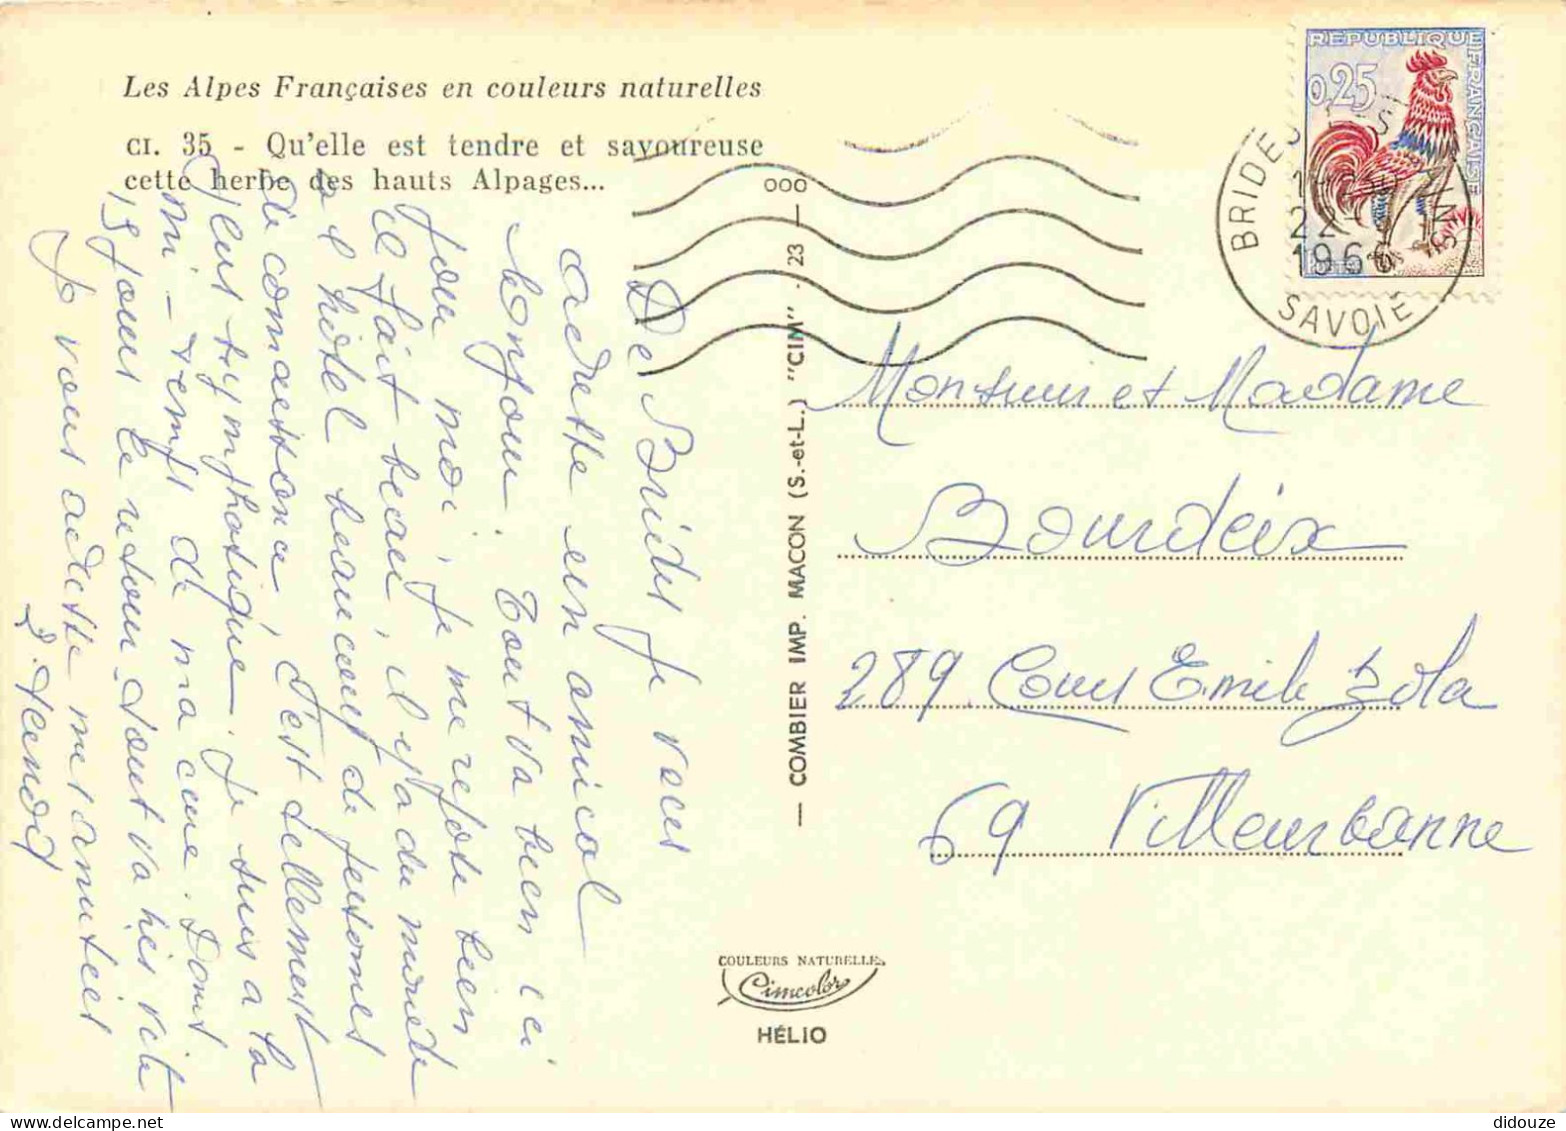 Les Alpes Françaises en couleurs naturelles
CI. 35 - Qu'elle est tendre et savoureuse
cette herbe des hauts Alpages...
RÉPUBLIQUE
FRANÇAISE
0,25
BRIDES LES
SAVOIE
22
196
De Brides je vous
adresse un amical
bonjour. Tout va bien ici
pour moi, je me repose bien
il fait beau, il y a du monde
a l hôtel beaucoup de personnes
de connaissance, c'est tellement
plus sympathique. je suis a la
mi - temps de ma cure. Dans
15 jours le retour, tout va très vite
Je vous adresse mes amitiés
COMBIER IMP. MACON (S.-et-L.) "CIM" - 23 -
Monsieur et Madame
Bourdeix
289, Cours Emile Zola
69 Villeurbanne
COULEURS NATURELLES
Cimcolor
HÉLIO
didouze